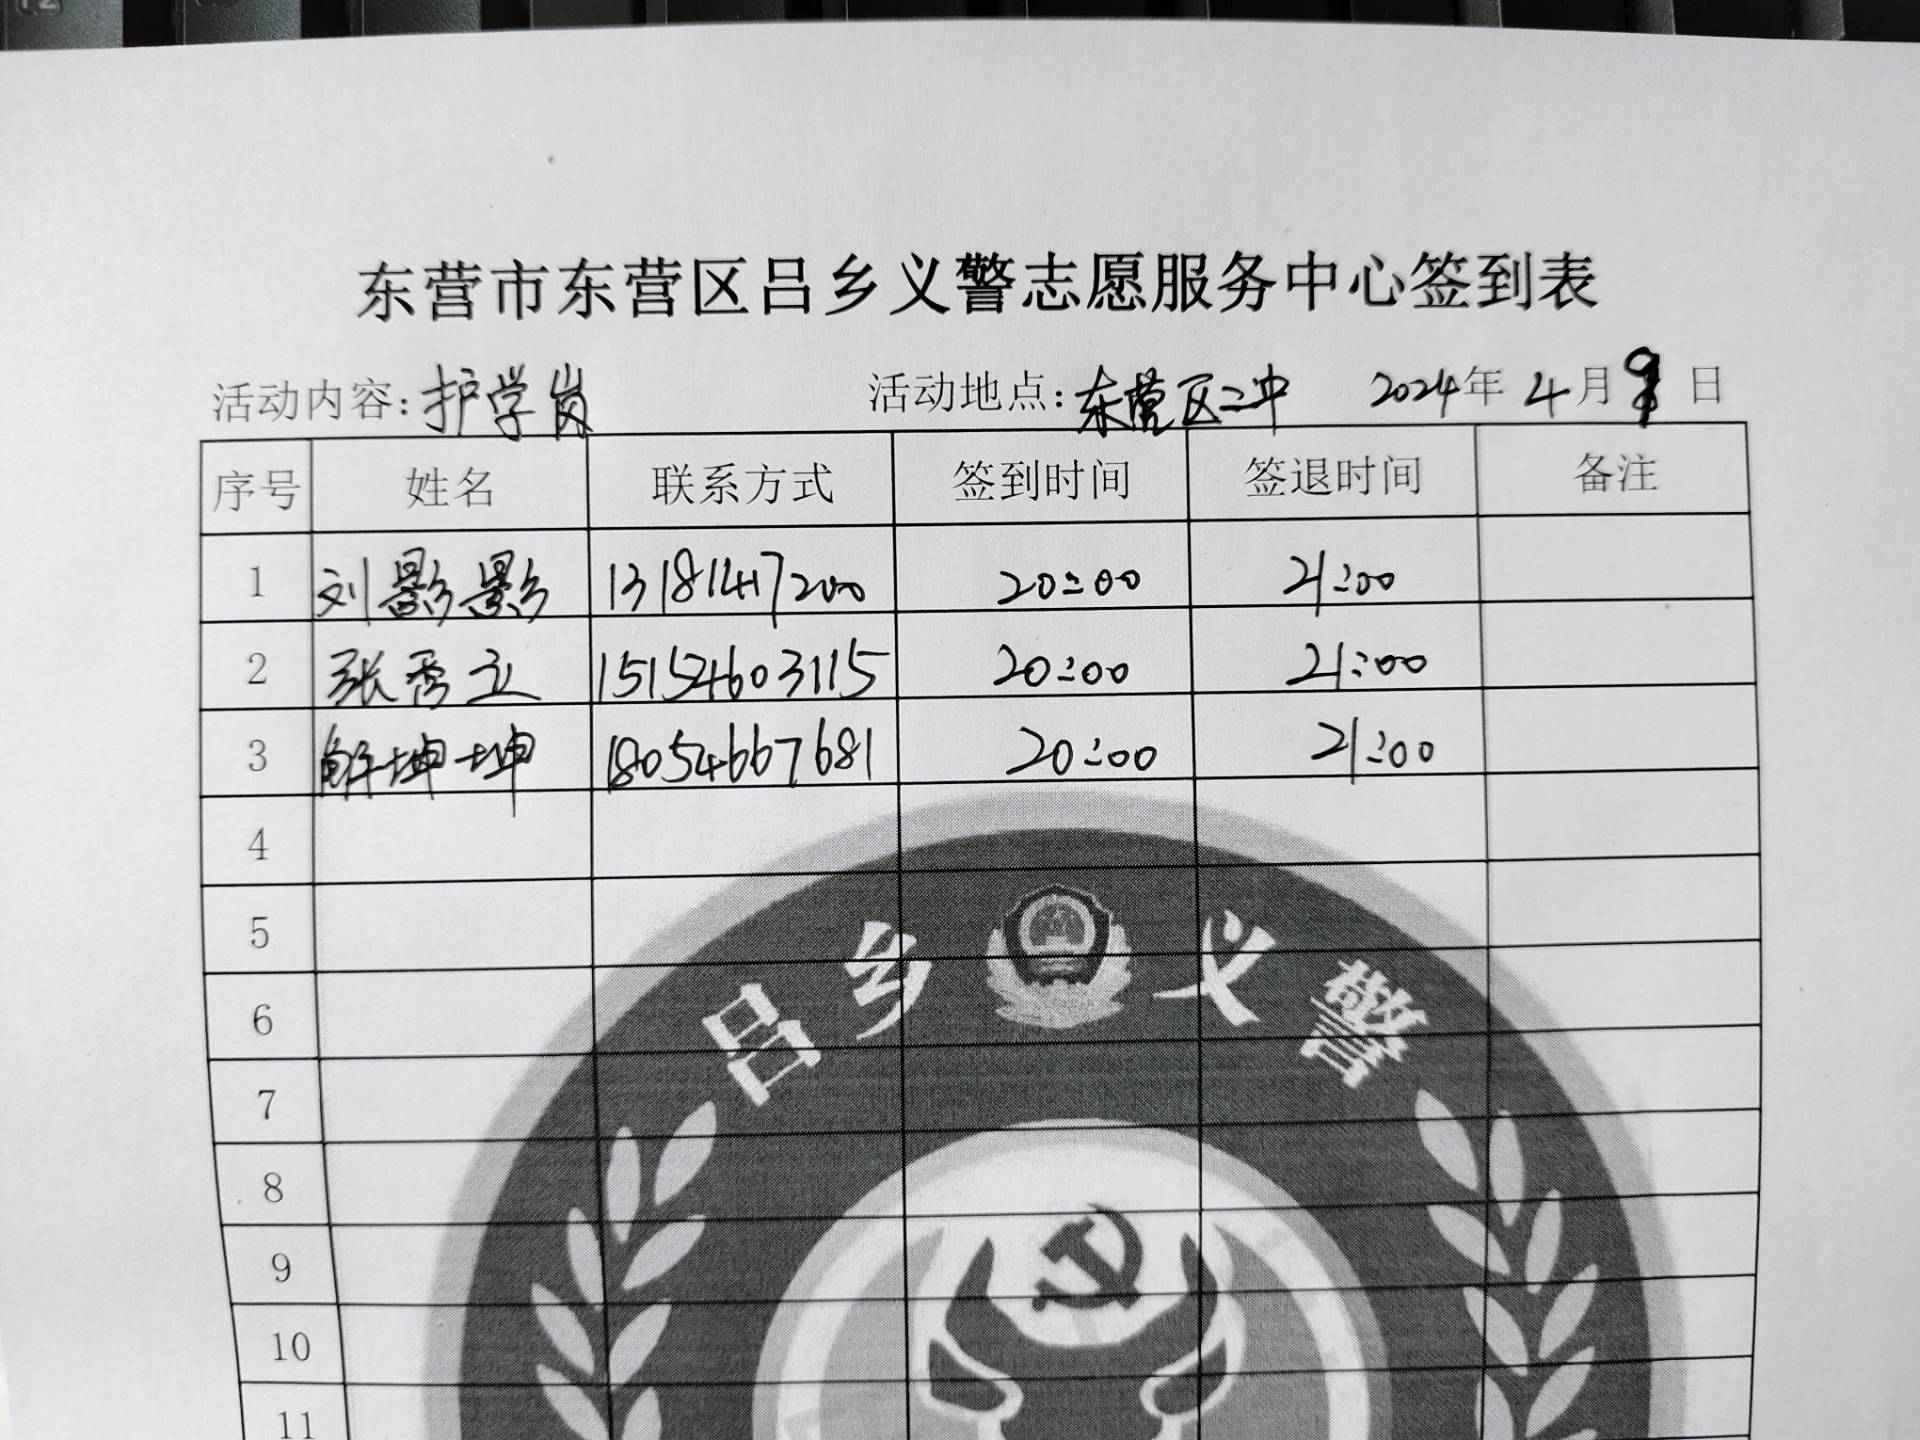 东营市东营区吕乡义警志愿服务中心签到表
活动内容:护学岗 活动地点:东营区二中 2024年 4月 9日
序号 姓名 联系方式 签到时间 签退时间 备注
1 刘影影 13181417200 20:00 21:00
2 张秀立 15154603115 20:00 21:00
3 解坤坤 18054667681 20:00 21:00
4
5
6
7
8
9
10
11
吕乡义警